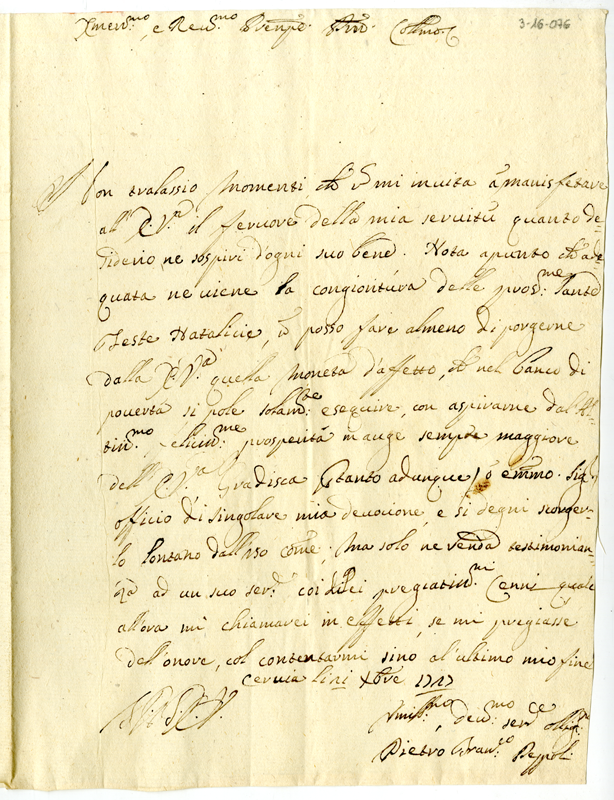 3-16-076
e Reu.mo
Non tralassio momenti ch' mi inuita à manisfetare
all' E.V.ra il feruore della mia seruitù quanto de-
siderio, ne sospiri d'ogni suo bene. Nota apunto ch' ade-
quata ne uiene la congiontura delle pros.me Sante
Feste Natalicie, posso fare almeno di porgerne
dalla E.V.a quella moneta d'affetto, ch' nel banco di
pouertà si pole solam.te eseguire, con aspirarne dal Al-
tiss.mo felicis.me prosperità in auge sempre maggiore
dell' E.V.a Gradisca adunque emmo. Sig.
officio di singolare mia deuocione, e si degni scorger-
lo lontano dall'uso com'e; Ma solo ne renda testimonian-
za ad un suo ser.e coi di Lei pregiatiss.mi Cenni quale
all'ora mi chiamarei in effetti, se mi pregiasse
dell'onore, col contentarmi sino al'ultimo mio fine
Ceruia li Xbre 1717
Umiliss.mo, deu.mo ser.e
Pietro Fran.co Peppoli